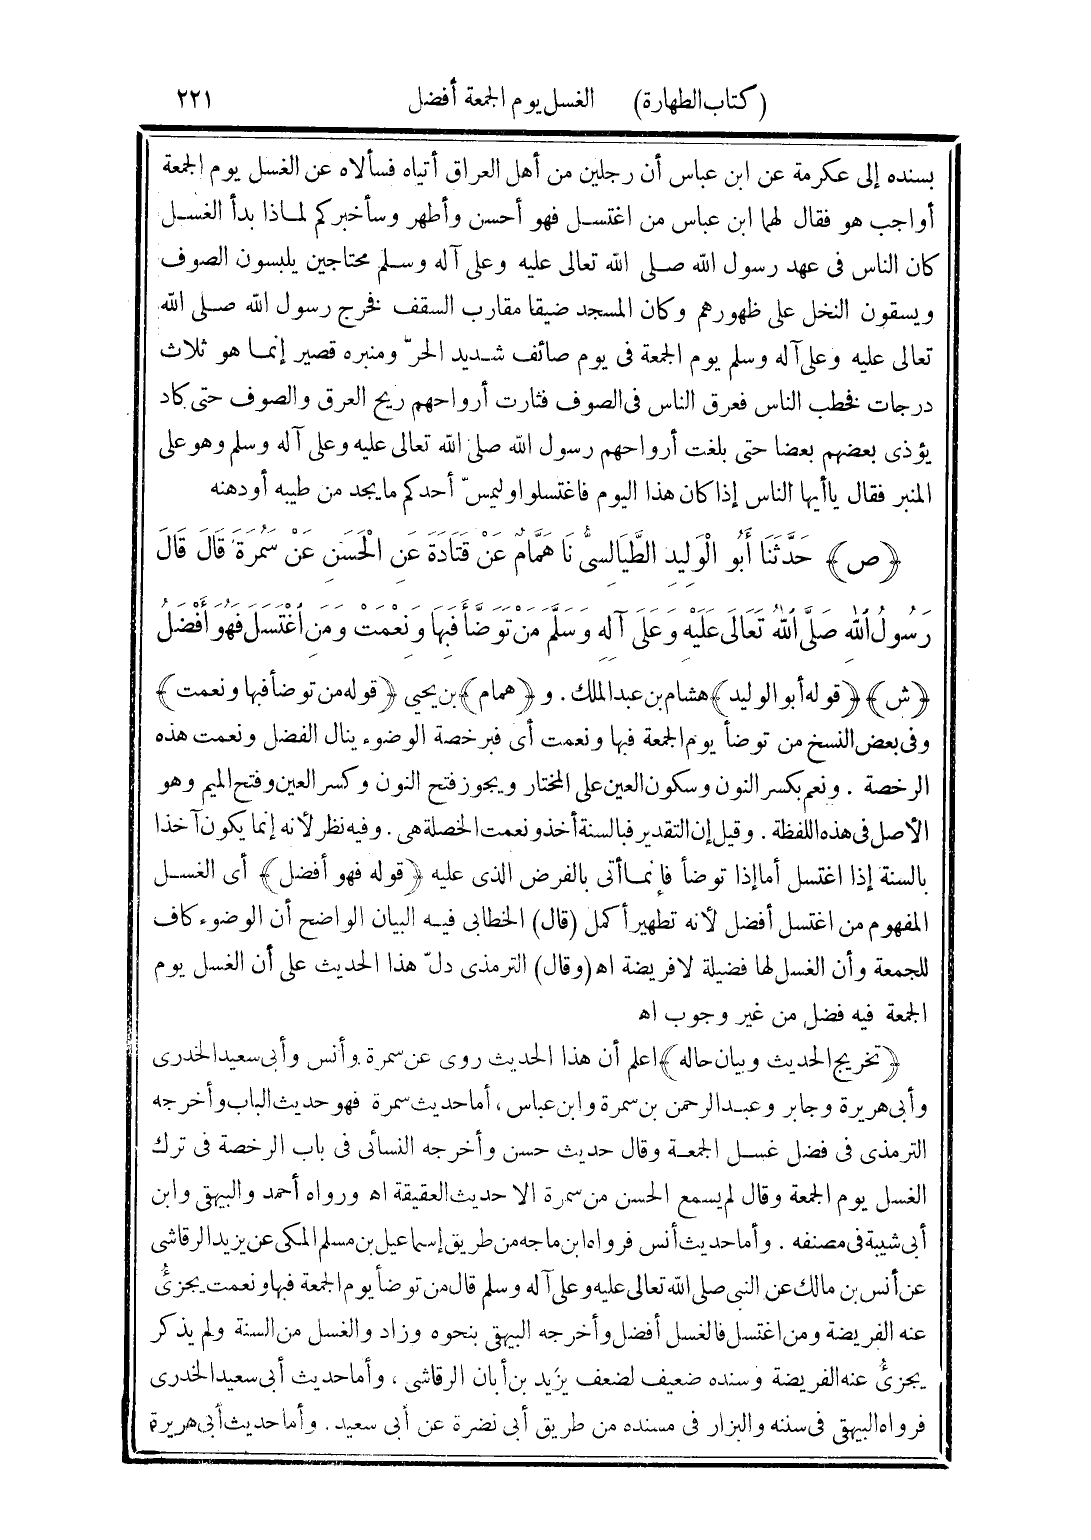 (كتاب الطهارة) الغسل يوم الجمعة أفضل ٢٢١
بسنده إلى عكرمة عن ابن عباس أن رجلين من أهل العراق أتياه فسألاه عن الغسل يوم الجمعة
أواجب هو فقال لهما ابن عباس من اغتسل فهو أحسن وأطهر وسأخبركم لماذا بدأ الغسل
كان الناس فى عهد رسول الله صلى الله تعالى عليه وعلى آله وسلم محتاجين يلبسون الصوف
ويسقون النخل على ظهورهم وكان المسجد ضيقا مقارب السقف فخرج رسول الله صلى الله
تعالى عليه وعلى آله وسلم يوم الجمعة فى يوم صائف شديد الحرّ ومنبره قصير إنما هو ثلاث
درجات فخطب الناس فعرق الناس فى الصوف فثارت أرواحهم ريح العرق والصوف حتى كاد
يؤذى بعضهم بعضا حتى بلغت أرواحهم رسول الله صلى الله تعالى عليه وعلى آله وسلم وهو على
المنبر فقال ياأيها الناس إذا كان هذا اليوم فاغتسلوا وليمسّ أحدكم ما يجد من طيبه أو دهنه
﴿ص﴾ حَدَّثَنَا أَبُو الْوَلِيدِ الطَّيَالِسِىُّ نَا هَمَّامٌ عَنْ قَتَادَةَ عَنِ الْحَسَنِ عَنْ سَمُرَةَ قَالَ قَالَ
رَسُولُ اللهِ صَلَّى اللهُ تَعَالَى عَلَيْهِ وَعَلَى آلِهِ وَسَلَّمَ مَنْ تَوَضَّأَ فَبِهَا وَنِعْمَتْ وَمَنِ اغْتَسَلَ فَهُوَ أَفْضَلُ
﴿ش﴾ ﴿قوله أبو الوليد﴾ هشام بن عبد الملك. و﴿همام﴾ بن يحيى ﴿قوله من توضأ فبها ونعمت﴾
وفى بعض النسخ من توضأ يوم الجمعة فبها ونعمت أى فبرخصة الوضوء ينال الفضل ونعمت هذه
الرخصة . ونعم بكسر النون وسكون العين على المختار ويجوز فتح النون وكسر العين وفتح الميم وهو
الأصل فى هذه اللفظة . وقيل إن التقدير فبالسنة أخذ ونعمت الخصلة هى . وفيه نظر لأنه إنما يكون آخذا
بالسنة إذا اغتسل أما إذا توضأ فإنما أتى بالفرض الذى عليه ﴿قوله فهو أفضل﴾ أى الغسل
المفهوم من اغتسل أفضل لأنه تطهير أكمل (قال) الخطابى فيه البيان الواضح أن الوضوء كاف
للجمعة وأن الغسل لها فضيلة لا فريضة اه (وقال) الترمذى دلّ هذا الحديث على أن الغسل يوم
الجمعة فيه فضل من غير وجوب اه
﴿تخريج الحديث وبيان حاله﴾ اعلم أن هذا الحديث روى عن سمرة وأنس وأبى سعيد الخدرى
وأبى هريرة وجابر وعبد الرحمن بن سمرة وابن عباس، أما حديث سمرة فهو حديث الباب وأخرجه
الترمذى فى فضل غسل الجمعة وقال حديث حسن وأخرجه النسائى فى باب الرخصة فى ترك
الغسل يوم الجمعة وقال لم يسمع الحسن من سمرة الا حديث العقيقة اه ورواه أحمد والبيهقى وابن
أبى شيبة فى مصنفه . وأما حديث أنس فرواه ابن ماجه من طريق إسماعيل بن مسلم المكى عن يزيد الرقاشى
عن أنس بن مالك عن النبى صلى الله تعالى عليه وعلى آله وسلم قال من توضأ يوم الجمعة فبها ونعمت يجزئُ
عنه الفريضة ومن اغتسل فالغسل أفضل وأخرجه البيهقى بنحوه وزاد والغسل من السنة ولم يذكر
يجزئُ عنه الفريضة وسنده ضعيف لضعف يزيد بن أبان الرقاشى ، وأما حديث أبى سعيد الخدرى
فرواه البيهقى فى سننه والبزار فى مسنده من طريق أبى نضرة عن أبى سعيد . وأما حديث أبى هريرة